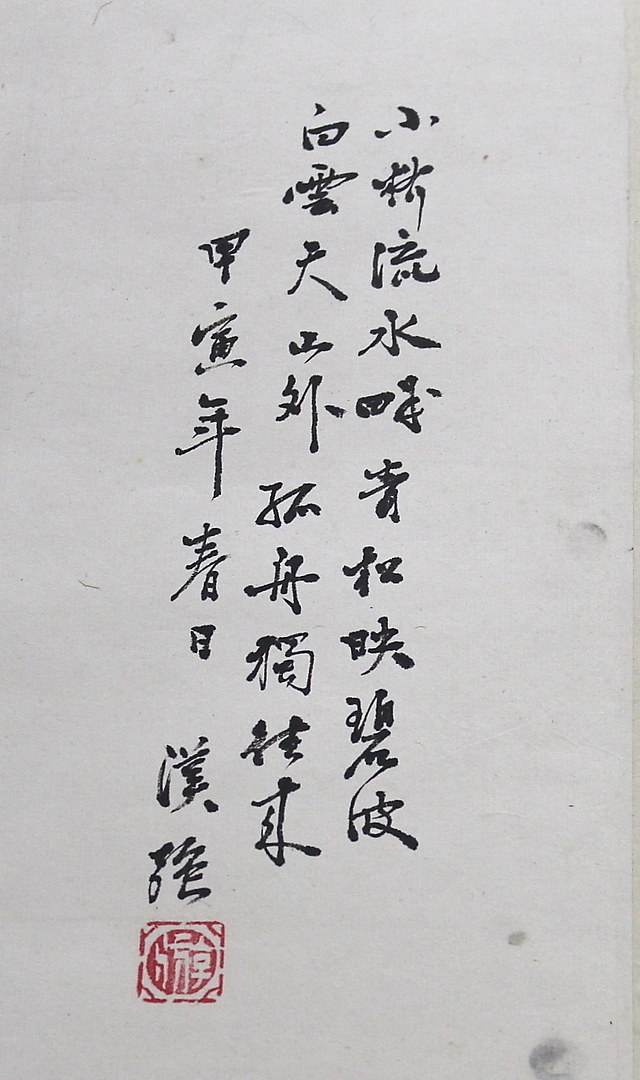 小桥流水畔青松映碧波
白雲天山外孤舟獨往来
甲寅年春日 漢強